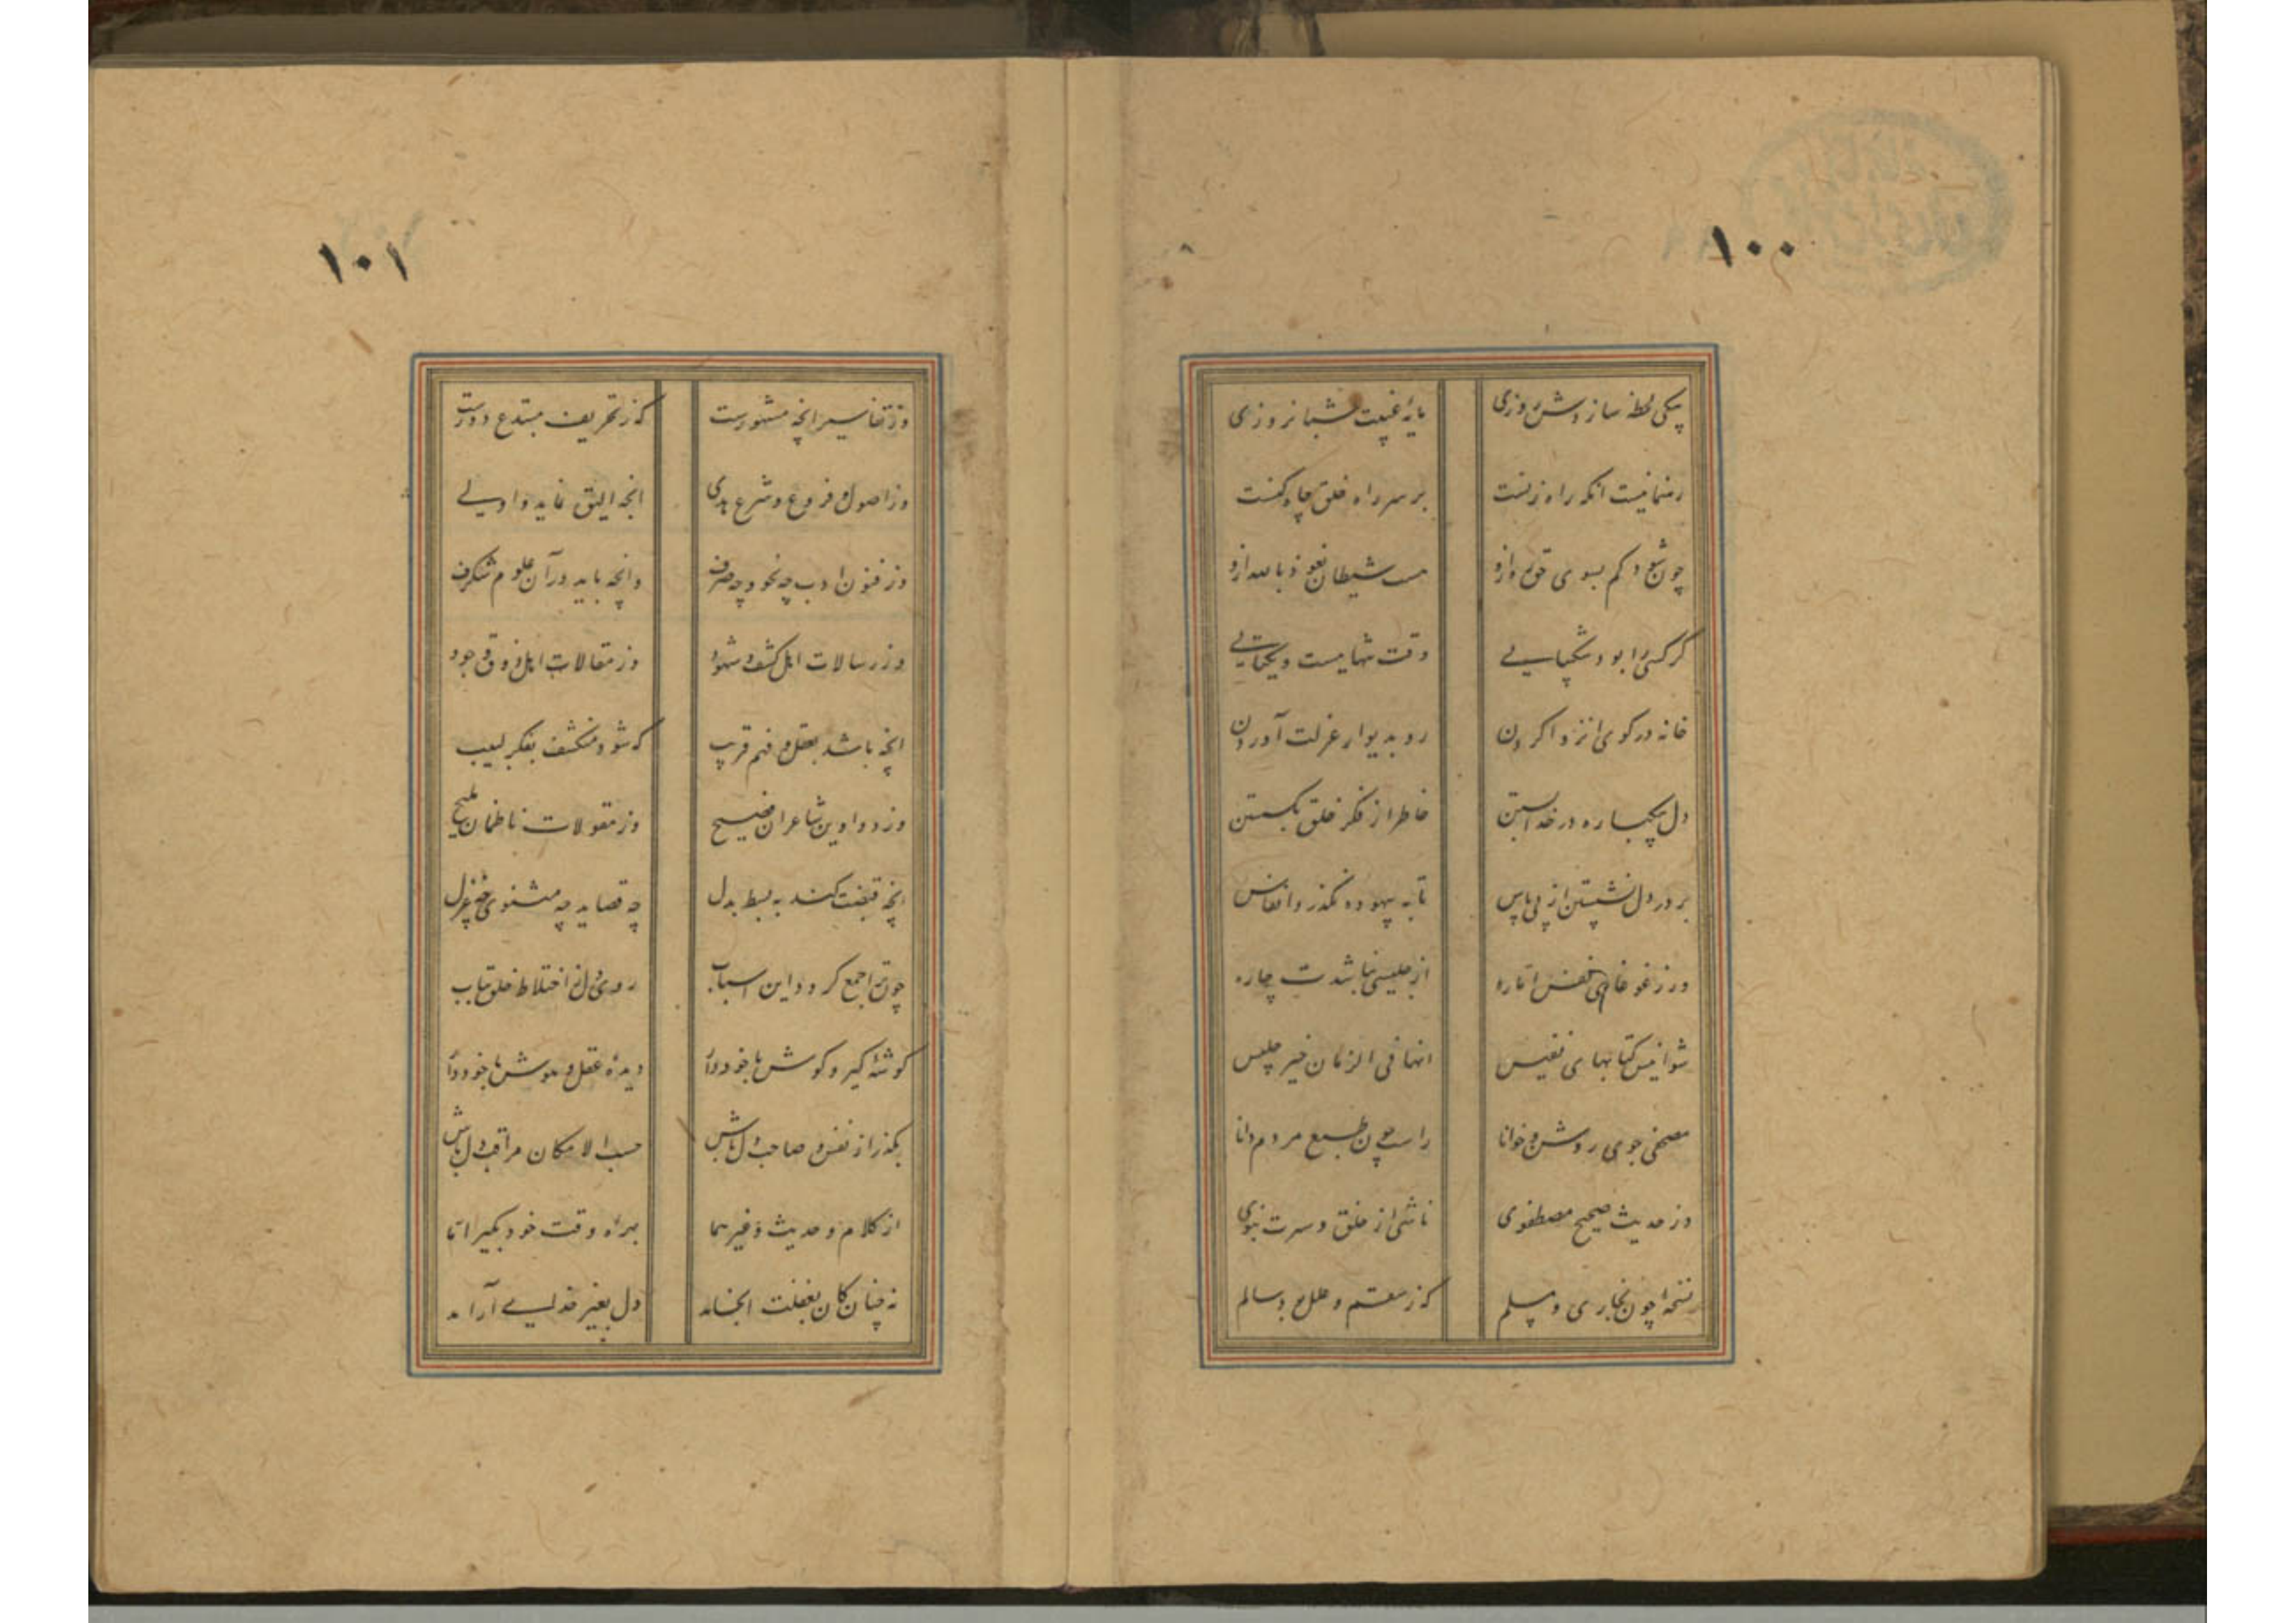 ۱۰۰
بیکی لحظه سازدش روزی مایه غیبت شبانروزی
رهنما نیست آنکه راه زنست بر سر راه خلق چاه کنست
چون شود کم بسوی حق ره ازو هست شیطان نعوذ بالله ازو
گر کسی را بود شکیبایی وقت تنهاییست و یکتایی
خانه در کوی انزوا کردن رو بدیوار عزلت آوردن
دل بیکباره در خدا بستن خاطر از فکر خلق بگسستن
بر در دل نشستن از پی پاس تا به بیهوده نگذرد انفاس
ور ز غوغای نفس اماره از جلیسی نباشدت چاره
شو انیس کتابهای نفیس انها فی الزمان خیر جلیس
مصحفی جوی روشن و خوانا راست چون طبع مردم دانا
وز حدیث صحیح مصطفوی ناشی از خلق و سرت نبوی
نسخه چون بخاری و مسلم که ز سقم و علل بود سالم
۱۰۱
وز تفاسیر انچه مشهورست که ز تحریف مبتدع دورست
وز اصول و فروع و شرع هدی انچه الیق نماید و اولی
وز فنون ادب چه نحو و چه صرف وانچه باید در آن علوم شگرف
وز رسالات اهل کشف و شهود وز مقالات اهل ذوق و وجود
انچه باشد بعقل و فهم قریب که شود منکشف بفکر لبیب
وز دواوین شاعران فصیح وز مقولات ناظمان ملیح
انچه قبضت کند به بسط بدل چه قصاید چه مثنوی چه غزل
چون ترا جمع گردد این اسباب روی دل ز اختلاط خلق بتاب
گوشهٔ گیر و گوش با خود دار دیدهٔ عقل و هوش با خود دار
بگذر از نفس و صاحب دل باش حسب الامکان مراقب دل باش
از کلام و حدیث و غیرهما بهرهٔ وقت خود بگیر اما
نه چنان کان بغفلت انجامد دل بغیر خدای آرامد